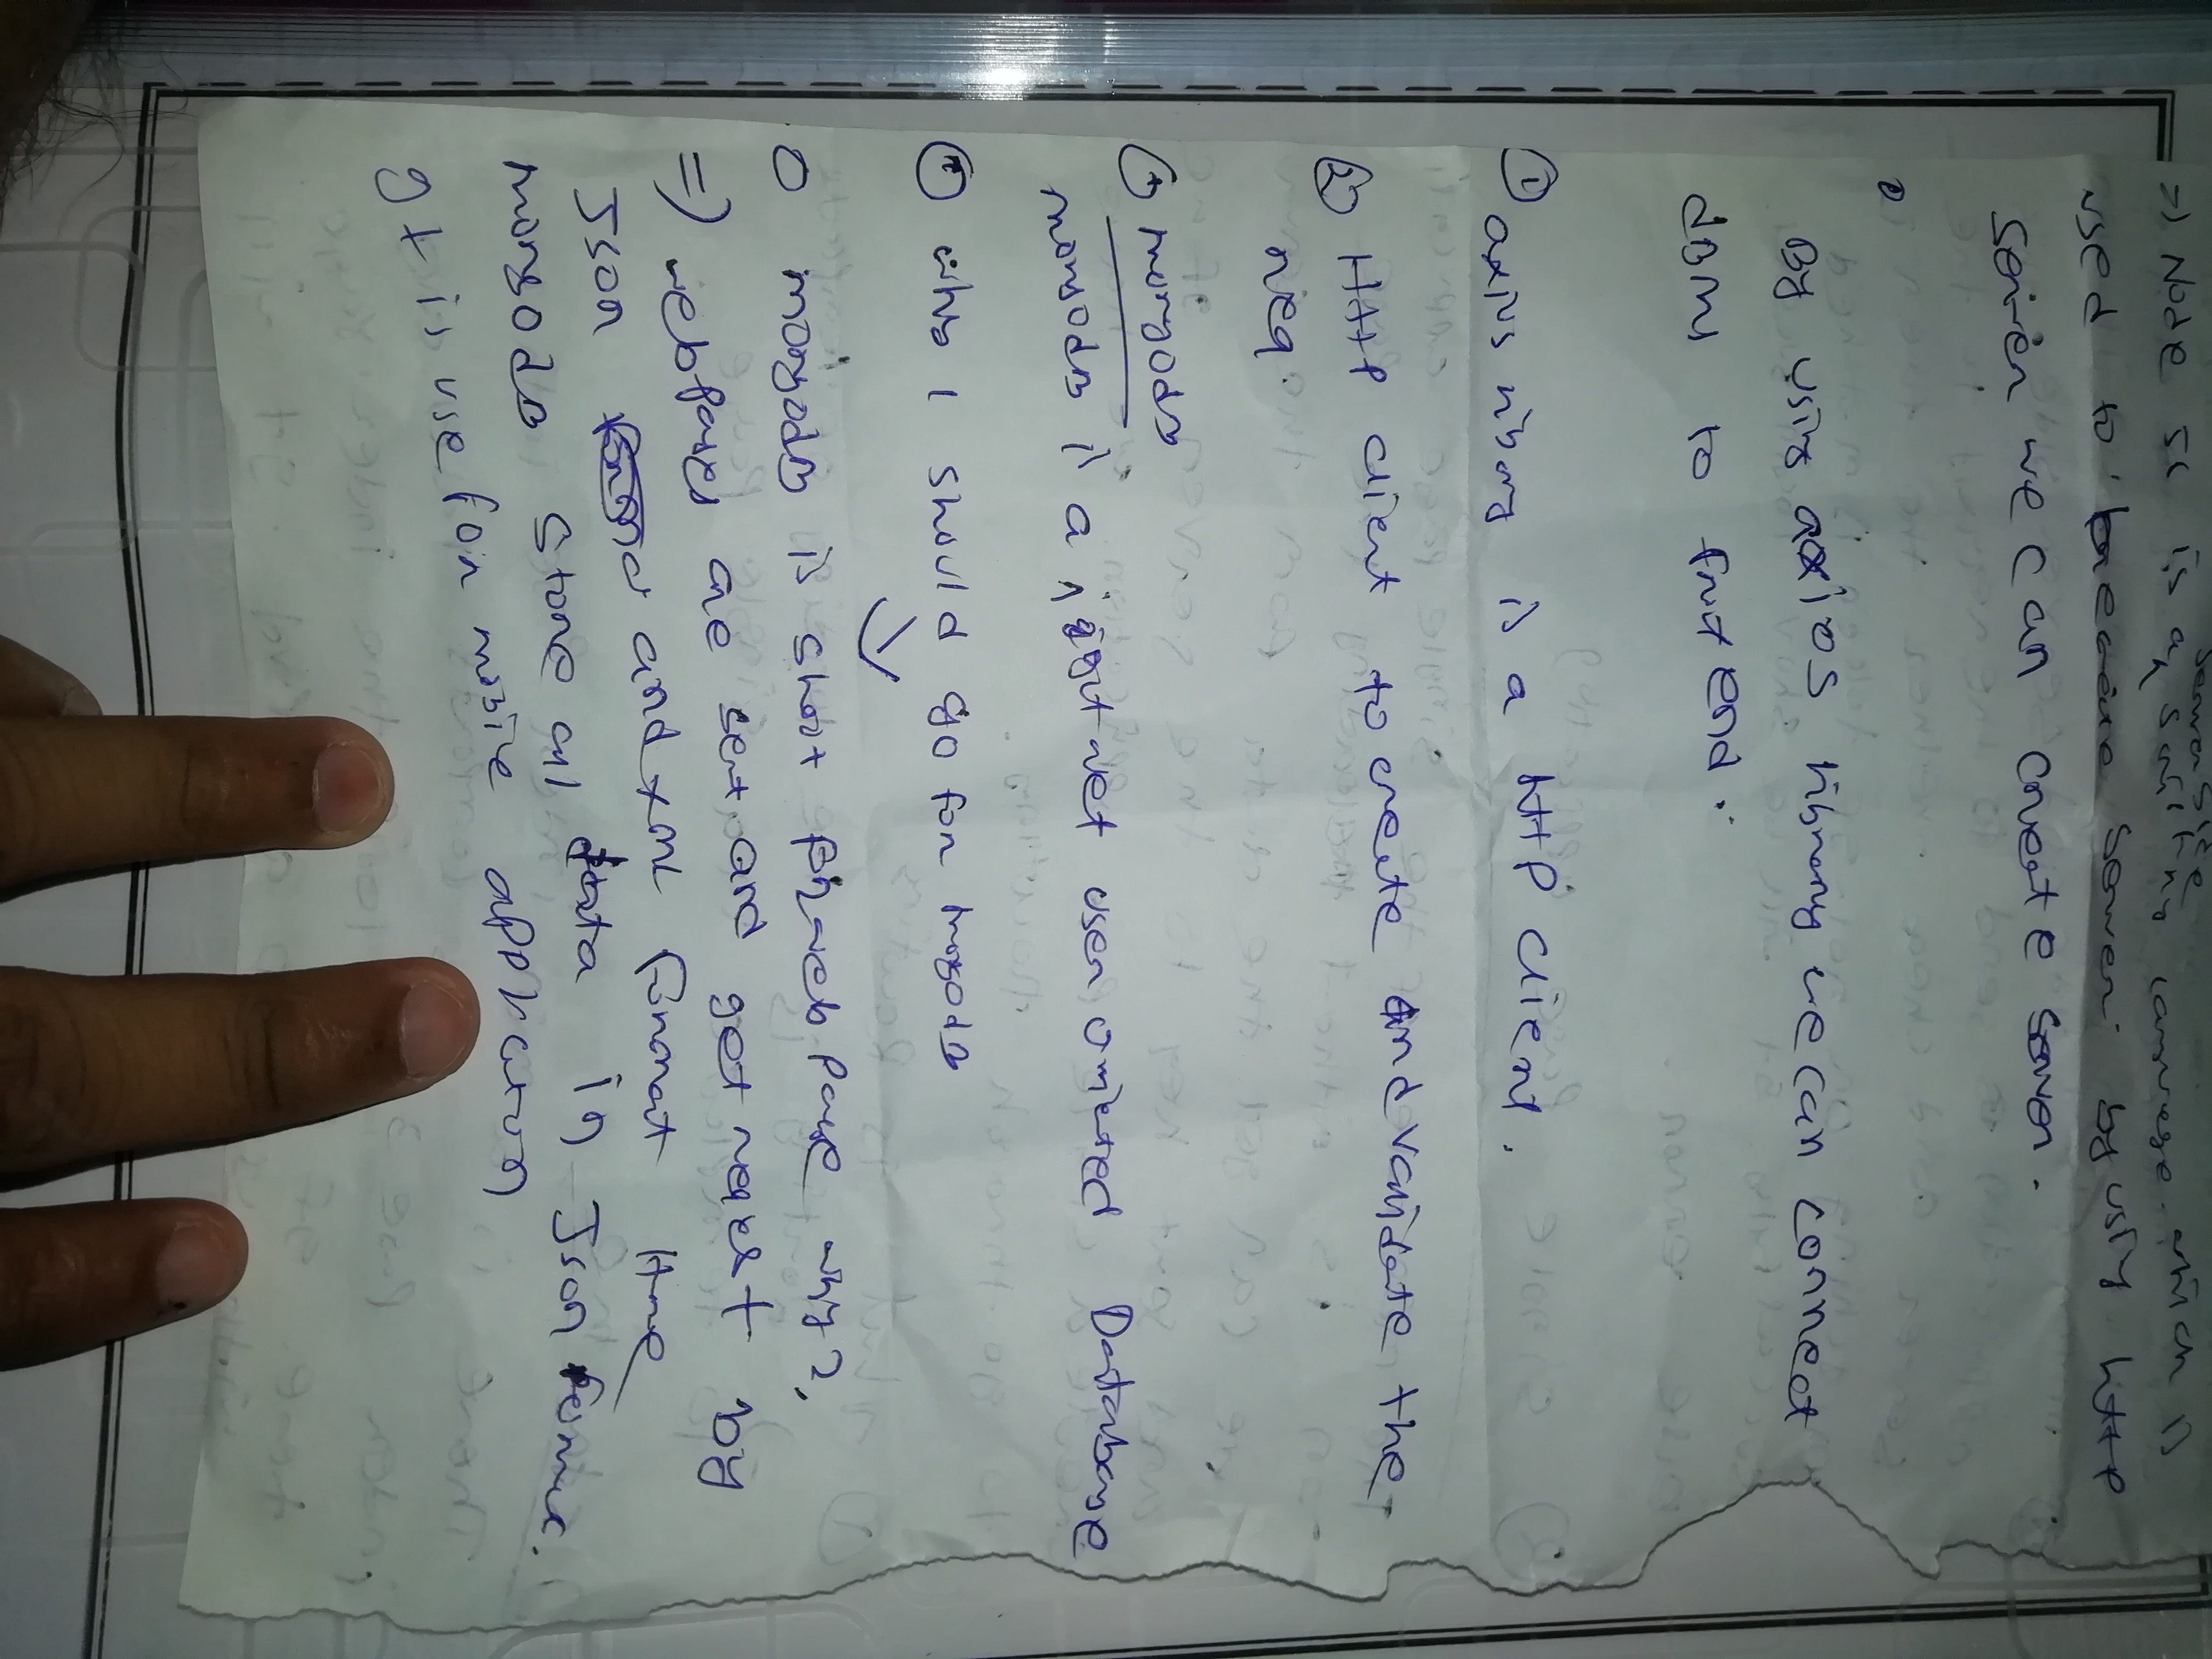 server side
=) Node JS is a scripting language which is
used to create server by using http
server we can create server.
By using axios library we can connect
dBMS to frnt end.
① axius library is a HttP client.
② HttP client to create And validate the
req.
mongodB
mongodB is a user oriented Database
why I should go for mongodB
O mongodB is short for web Page why?,
=) webpages are sent and get reqest by
Json and XML format
mongodB Store all data in Json
It is use for mobile application